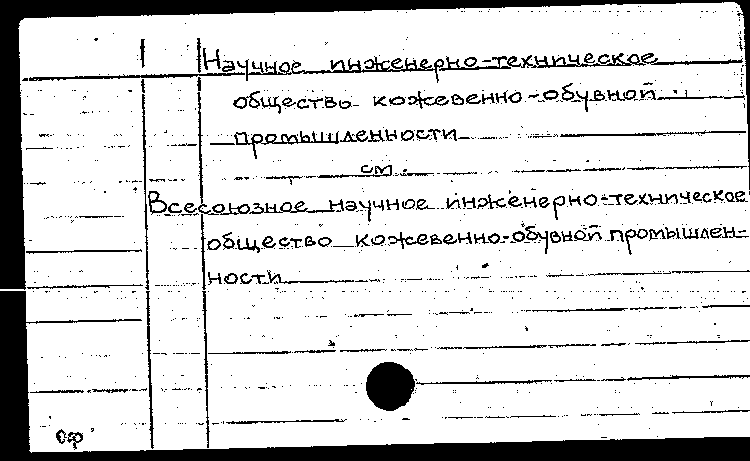 Научное инженерно-техническое
общество кожевенно-обувной
промышленности
см.
Всесоюзное научное инженерно-техническое
общество кожевенно-обувной промышлен-
ности
оф